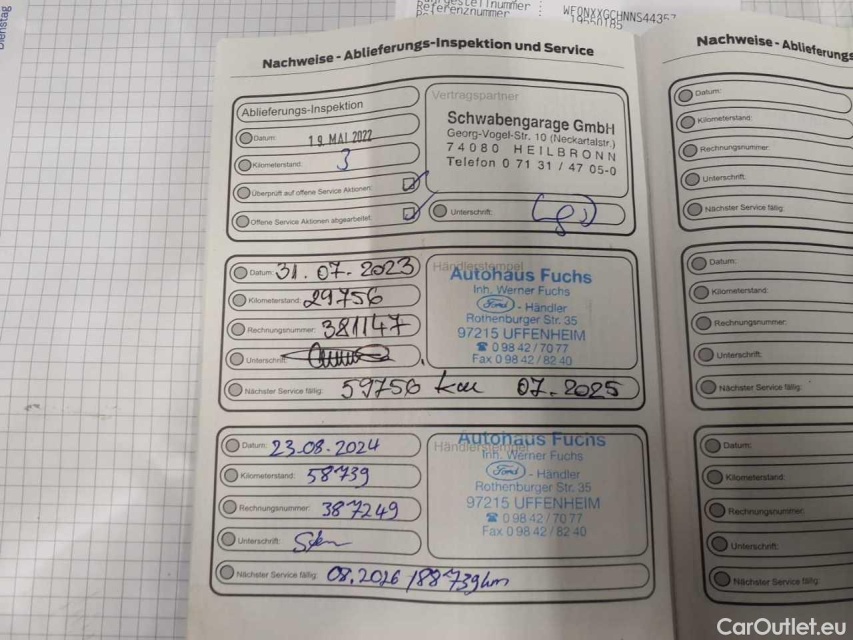 Dienstag
Fahrgestellnummer : WF0NXXGCHNNS44357
Referenznummer : 19550185
Nachweise - Ablieferungs-Inspektion und Service
Ablieferungs-Inspektion
Datum: 19. MAI 2022
Kilometerstand: 3
Überprüft auf offene Service Aktionen:
Offene Service Aktionen abgearbeitet:
Vertragspartner
Schwabengarage GmbH
Georg-Vogel-Str. 10 (Neckartalstr.)
74080 HEILBRONN
Telefon 0 71 31 / 47 05-0
Unterschrift:
Datum: 31.07.2023
Kilometerstand: 29756
Rechnungsnummer: 381147
Unterschrift:
Nächster Service fällig: 59756 km 07.2025
Händlerstempel
Autohaus Fuchs
Inh. Werner Fuchs
Ford - Händler
Rothenburger Str. 35
97215 UFFENHEIM
☎ 0 98 42 / 70 77
Fax 0 98 42 / 82 40
Datum: 23.08.2024
Kilometerstand: 58739
Rechnungsnummer: 387249
Unterschrift:
Nächster Service fällig: 08.2026 / 88739km
Händlerstempel
Autohaus Fuchs
Inh. Werner Fuchs
Ford - Händler
Rothenburger Str. 35
97215 UFFENHEIM
☎ 0 98 42 / 70 77
Fax 0 98 42 / 82 40
Nachweise - Ablieferungs
Datum:
Kilometerstand:
Rechnungsnummer:
Unterschrift:
Nächster Service fällig:
Datum:
Kilometerstand:
Rechnungsnummer:
Unterschrift:
Nächster Service fällig:
Datum:
Kilometerstand:
Rechnungsnummer:
Unterschrift:
Nächster Service fällig:
CarOutlet.eu